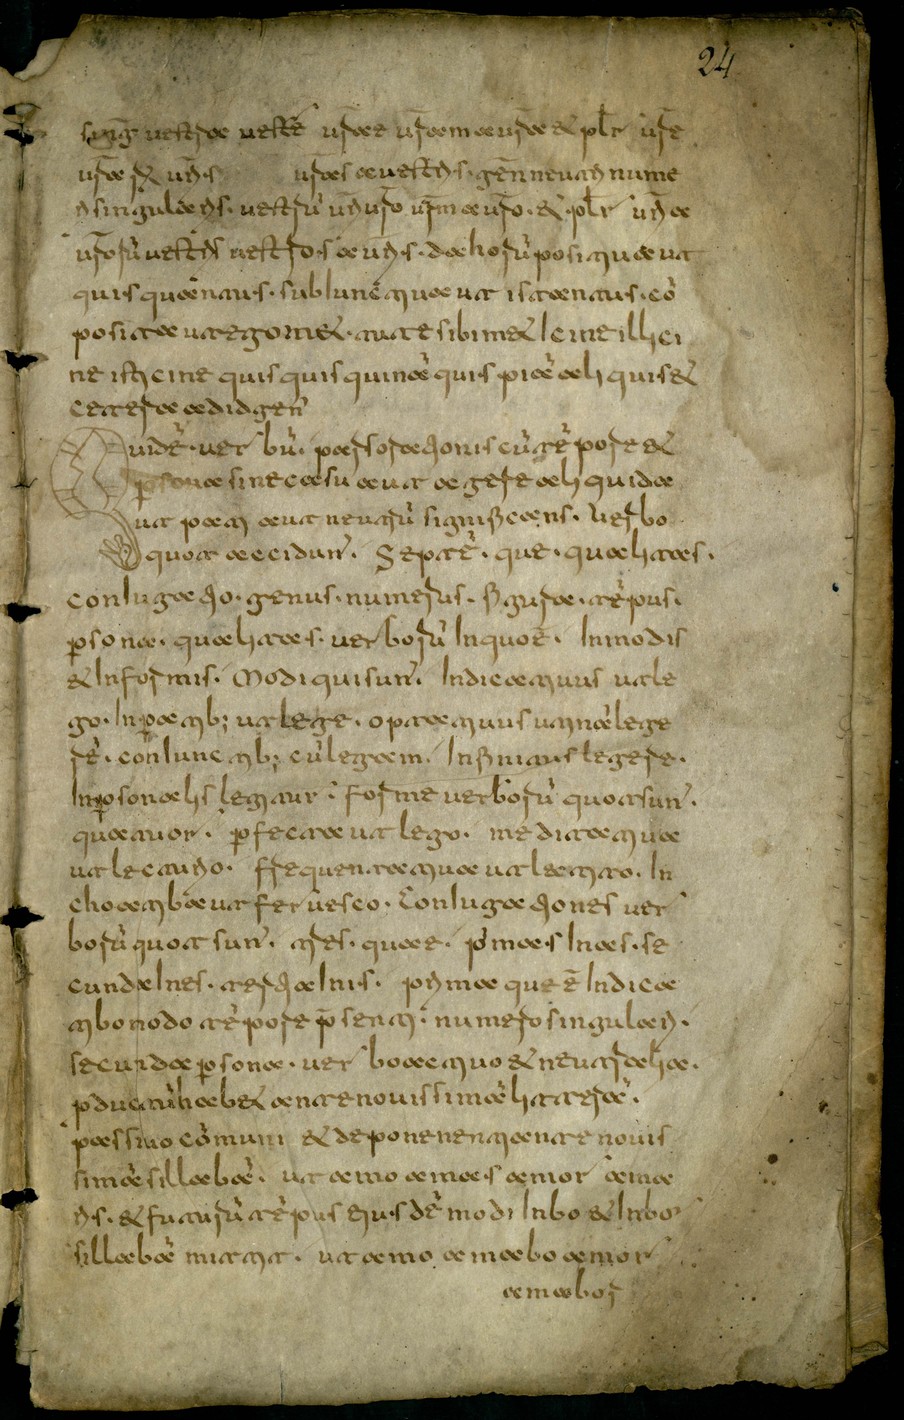 24
sing̅ uestra ueste̅ ur̅ae ur̅am a ur̅a & pl̅r ur̅e
ur̅a r̅& ur̅is ur̅as a uestris. gen̅ neutri nume
ri singularis. uestru̅ ur̅i ur̅o ur̅m a ur̅o. & pl̅r ur̅a
ur̅oru̅ uestris uestros a ur̅is. da horu̅ positiua ut
quis qualitatis. sub lunctiua ut is tantus. co̅
posita ut egomet. tute sibimet
ne isticine quisquis quina̅ quis pia̅ aliquis &
cetera ad id gen̅
Quid e̅. uer bu̅. pars orationis cu̅ te̅pore &
p̅sona sine casu aut agere aliquid
aut pati aut neutru̅ significans. Uerbo
quot accidun̅. Septe̅. que. qualitas.
Coniugatio. genus. numerus. figura. te̅pus.
p̅sona. qualitas. uerboru̅ In quo e̅. In modis
& In formis. Modi qui sun̅. Indicatiuus ut le
go. Inp̅atib; ut lege. optatiuus utina̅ lege
re̅. coniunctib; cu̅ lega̅m. Infinitiuus legere.
Inp̅sonalis legitur. forme uerboru̅ quot sun̅.
quattuor. p̅fecta ut lego. meditatiua
ut lecturio. frequentatiua ut lectito. In
choatiba ut feruesco. Coniugationes uer
boru̅ quot sun̅. tres. que. p̅ma. as In as. se
cunda In es. tertia In is. prima que e̅ Indica
tibo modo te̅pore p̅senti. numero singulari.
secunda p̅sona. uerbo actiuo & neutrali. a.
p̅ducta̅ habet ante nouissima̅ littera̅.
passiuo co̅muni & deponenti ante nouis
sima̅ sillaba̅. ut amo amas amor ama
ris. & futuru̅ te̅pus eius de̅ modi In bo & In bor
sillaba̅ mittit. ut amo amabo amor
amabor